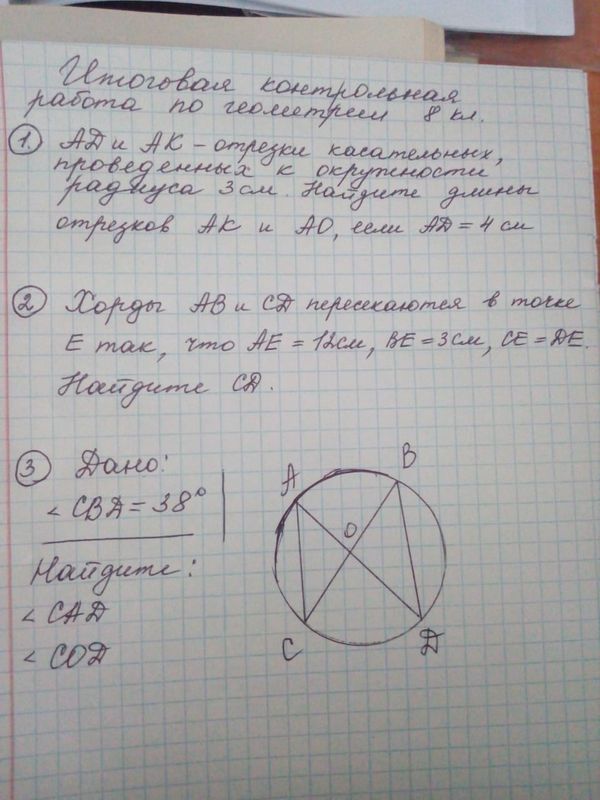 Итоговая контрольная
работа по геометрии 8 кл.
1. AD и AK - отрезки касательных,
проведенных к окружности
радиуса 3 см. Найдите длины
отрезков AK и AO, если AD = 4 см
2 Хорды AB и CD пересекаются в точке
E так, что AE = 12см, BE = 3см, CE = DE.
Найдите CD.
3 Дано:
∠ CBD = 38°
Найдите:
∠ CAD
∠ COD
A
B
O
C
D